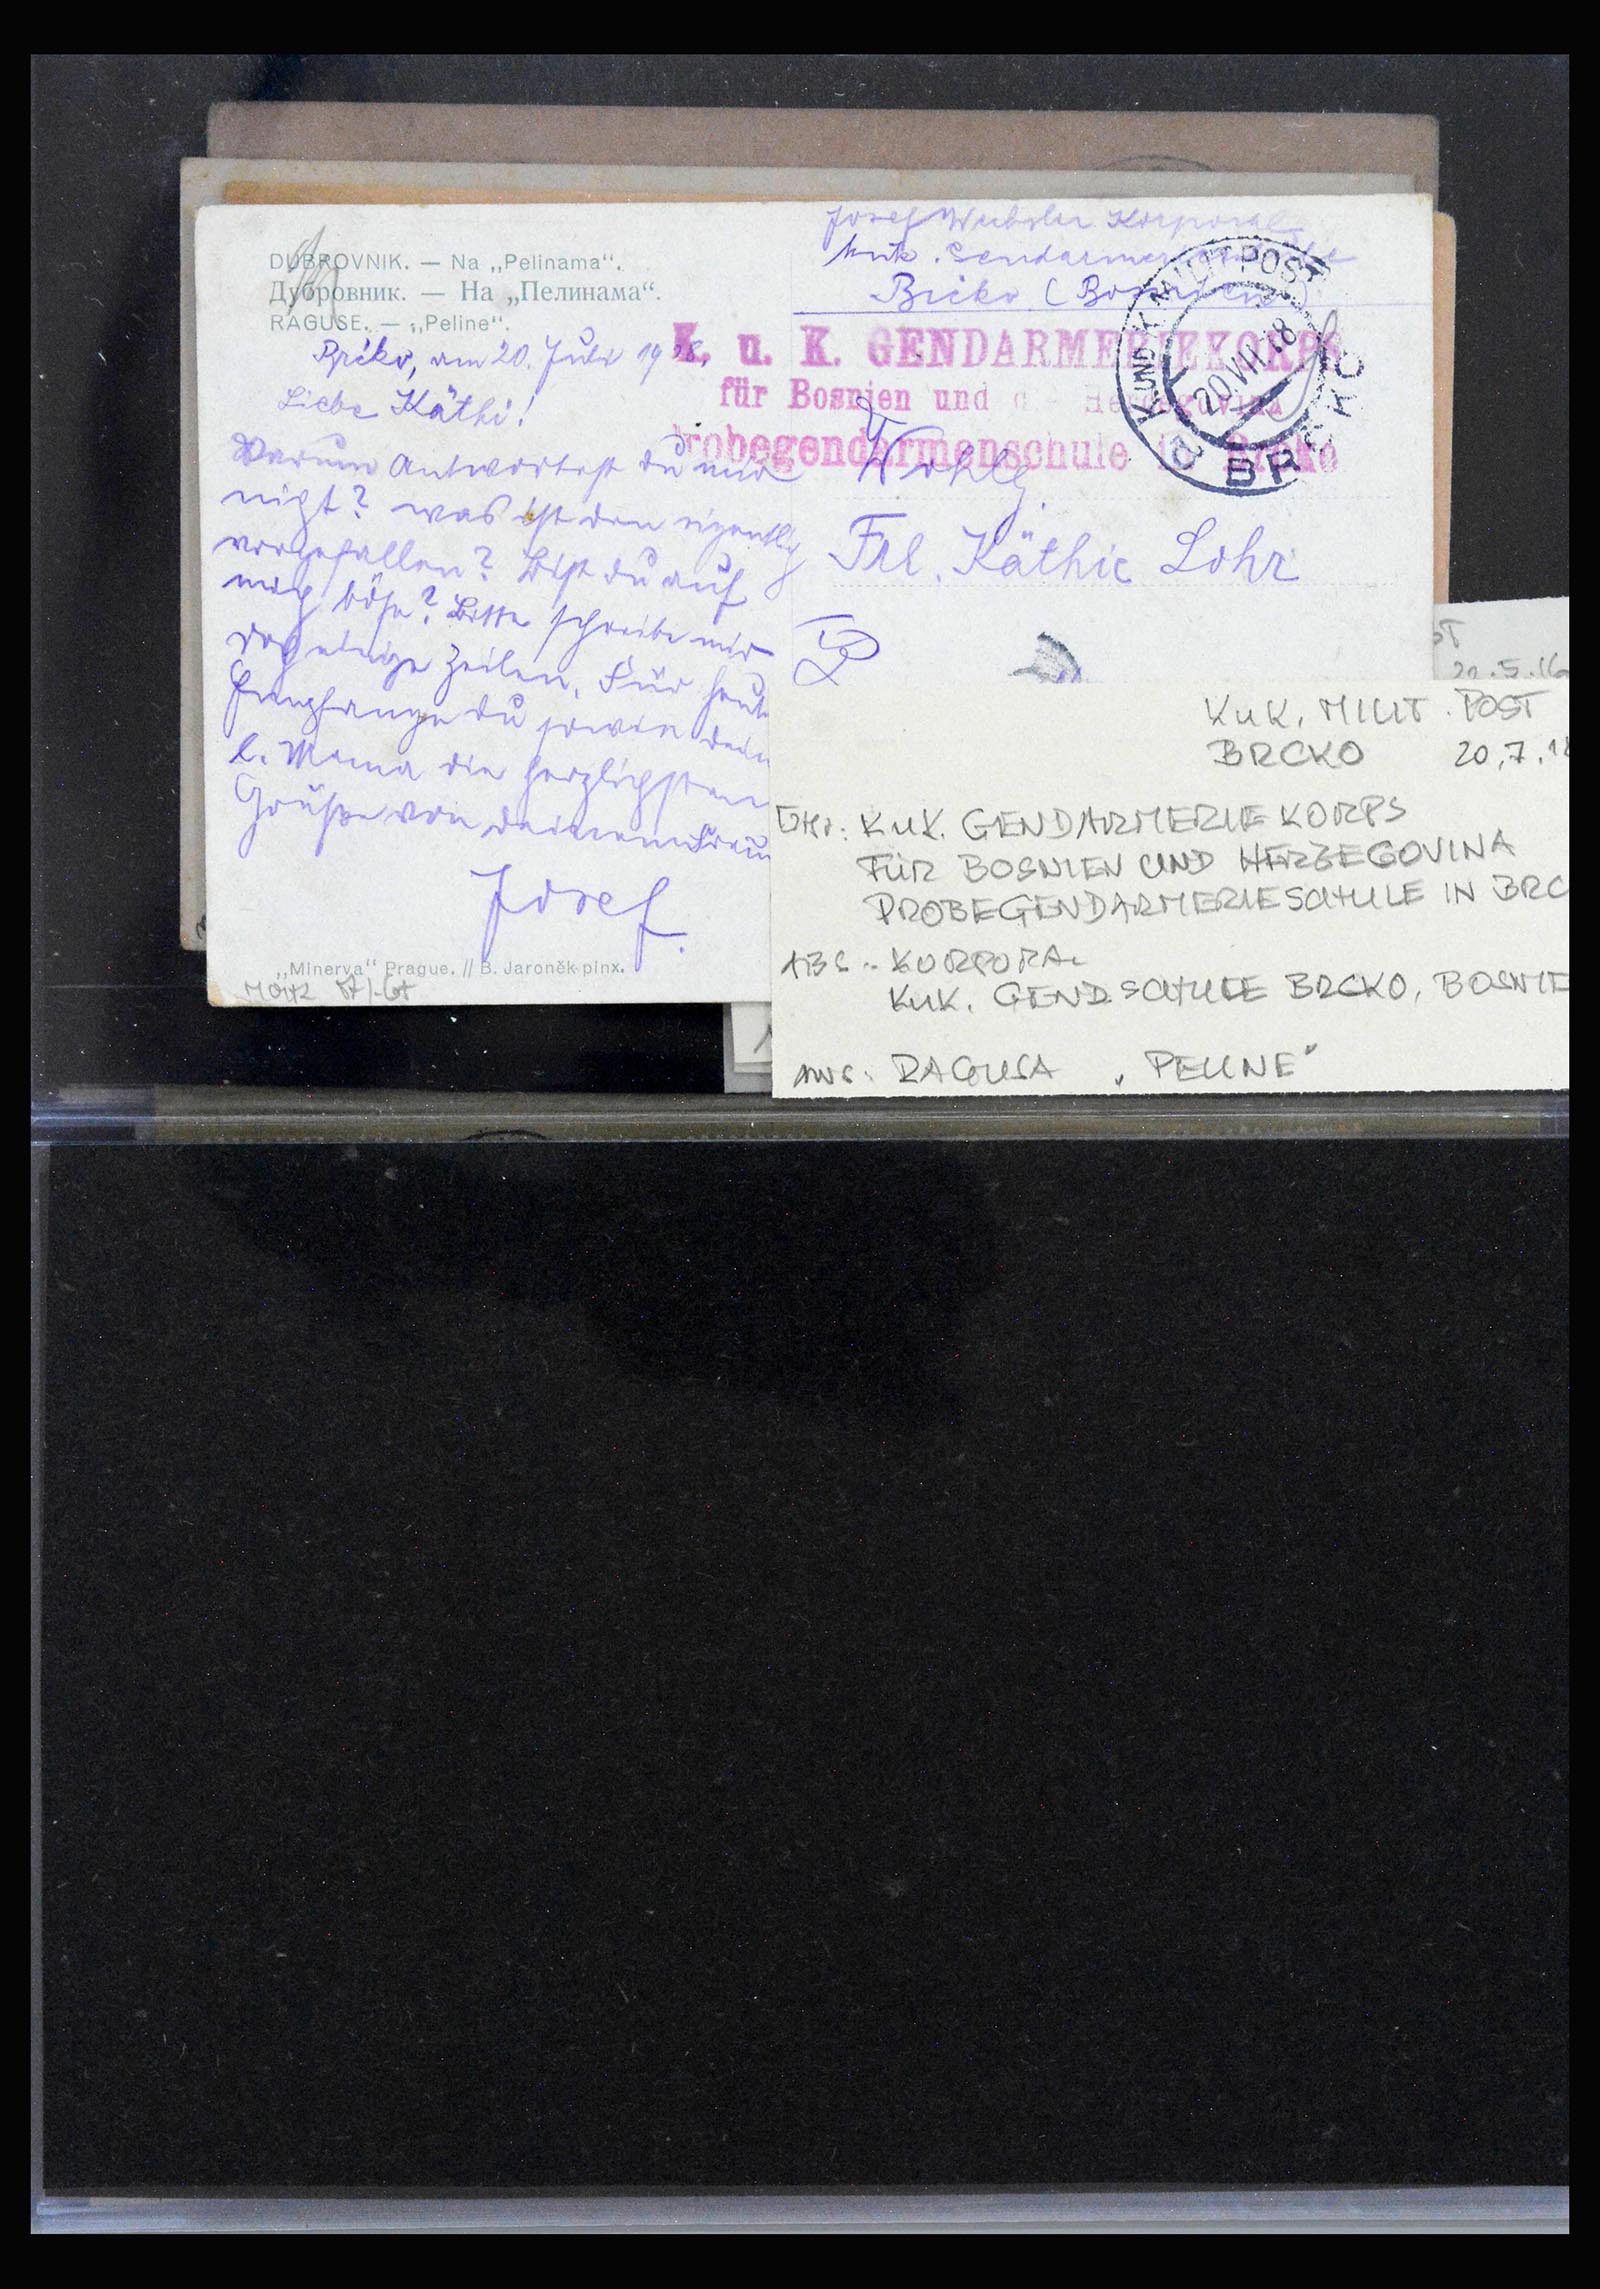 DUBROVNIK. — Na „Pelinama“.
Дубровник. — На „Пелинама“.
RAGUSE. — „Peline“.
Brčko, am 20. Juli 1918.
Liebe Käthi!
Warum Antwortest du mir
nigt? was ist den eigentlig
vorgefallen? Bist du auf
mich böse? Bitte schreibe mir
doch einige Zeilen. Für heut
Empfange du sowie dein
l. Mama die herzlichsten
Grüße von deinem Freun
Josef.
„Minerva“ Prague. // B. Jaroněk pinx.
Josef Korporal
kuk. Gendarmerieschule
Brčko (Bosnien)
K. u. K. GENDARMERIEKORPS
für Bosnien und d Hercegovina
Probegendarmenschule in Brčko
K. UND K. MILIT. POST
20 VII 18
BRČKO
a
Wohlg.
Frl. Käthie Lohr
ST
20.5.16
KuK. MILIT. POST
BRCKO 20.7.18
KuK. GENDARMERIEKORPS
FÜR BOSNIEN UND HERZEGOVINA
PROBEGENDARMERIESCHULE IN BRC
ABS.: KORPORAL
KuK. GEND.SCHULE BRCKO, BOSNIE
ANS: RAGUSA „PELINE“